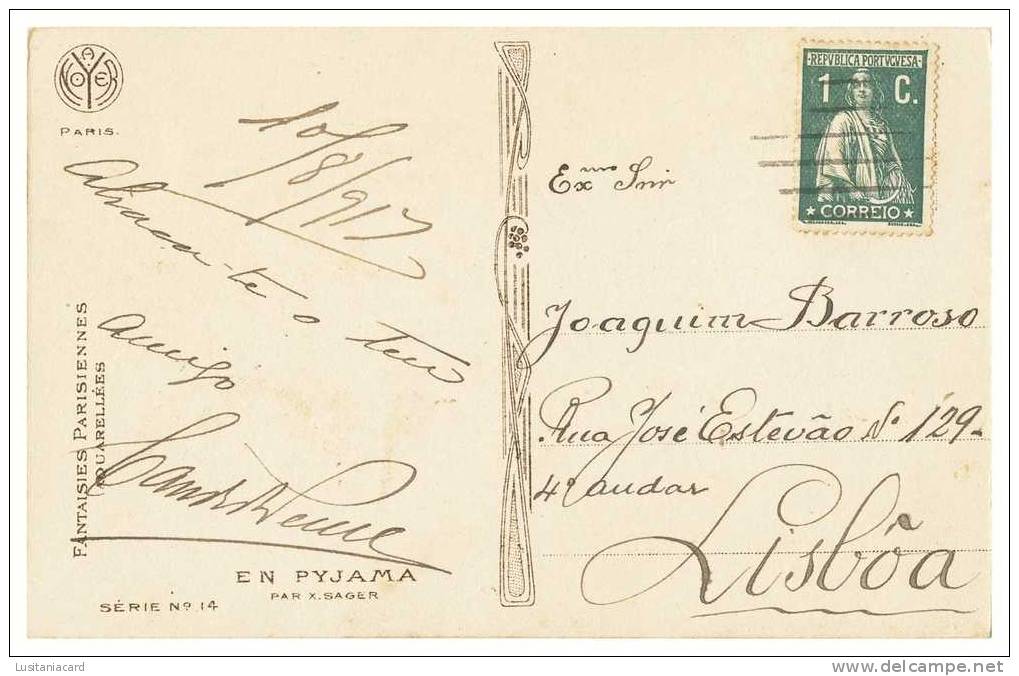 NOYER
PARIS.
10/8/917
Abraça-te o teu
amigo
FANTAISIES PARISIENNES
AQUARELLÉES
EN PYJAMA
PAR X. SAGER
SÉRIE Nº 14
REPVBLICA PORTVGVESA
1 C.
CORREIO
Exmo Snr
Joaquim Barroso
Rua José Estevão Nº 129-
4º andar
Lisbôa
Lusitaniacard
www.delcampe.net